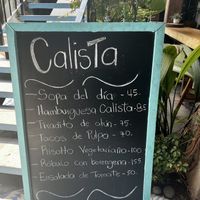 CalisTa
- Sopa del día - 45.
- Hamburguesa Calista - 95
- Tiradito de atún - 75.
- Tacos de Pulpo - 70.
- Risotto Vegetariano - 100
- Robalo con berengena - 155
- Ensalada de Tomate - 50.